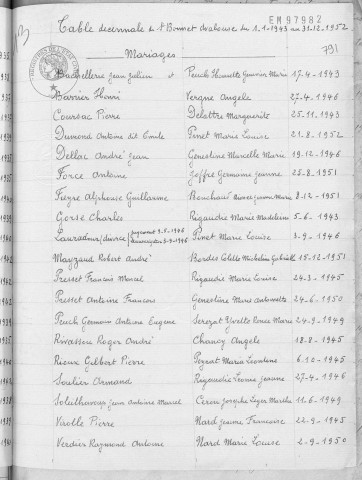 EM97982
Table décennale de St Bonnet Avalouze du 1.1.1943 au 31.12.1952
791
Mariages
Bachellerie Jean Julien et Peuch Henriette Germaine Marie 17-4-1943
Barrier Henri Vergne Angèle 27-4-1946
Coursac Pierre Delottre Marguerite 25.11.1943
Dumond Antoine dit Emile Pinet Marie Louise 21.8.1952
Dellac André Jean Genestine Marcelle Marie 19.12-1946
Force Antoine Joffre Germaine Jeanne 25-8-1951
Fieyre Alphonse Guillaume Jeanne Marie 8-12-1951
Gorse Charles Rigaudie Marie Madeleine 5-6-1943
divorce jugement 3-5-1946 Pinet Marie Louise 3-9-1946
transcription 3-9-1946
Mayzaud Robert André Bordes Odette Micheline Gabrielle 15.12-1951
Presset François Marcel Rigaudie Marie Louise 24-3-1945
Presset Antoine François Genestine Marie Antoinette 24-6-1950
Peuch Germain Antoine Eugène Serezat Yvette Renée Marie 24-9-1949
Rivassou Roger André Chanoy Angèle 18-8-1945
Rioux Gilbert Pierre Peyrat Maria Léontine 6-12-1945
Soulier Armand Rigaudie Léonie Jeanne 27-4-1946
Jean Antoine Marcel Ceron Josephe Marthe 11-6-1949
Virolle Pierre Nard Jeanne Françoise 22-9-1945
Verdier Raymond Antoine Nard Marie Louise 2-9-1950